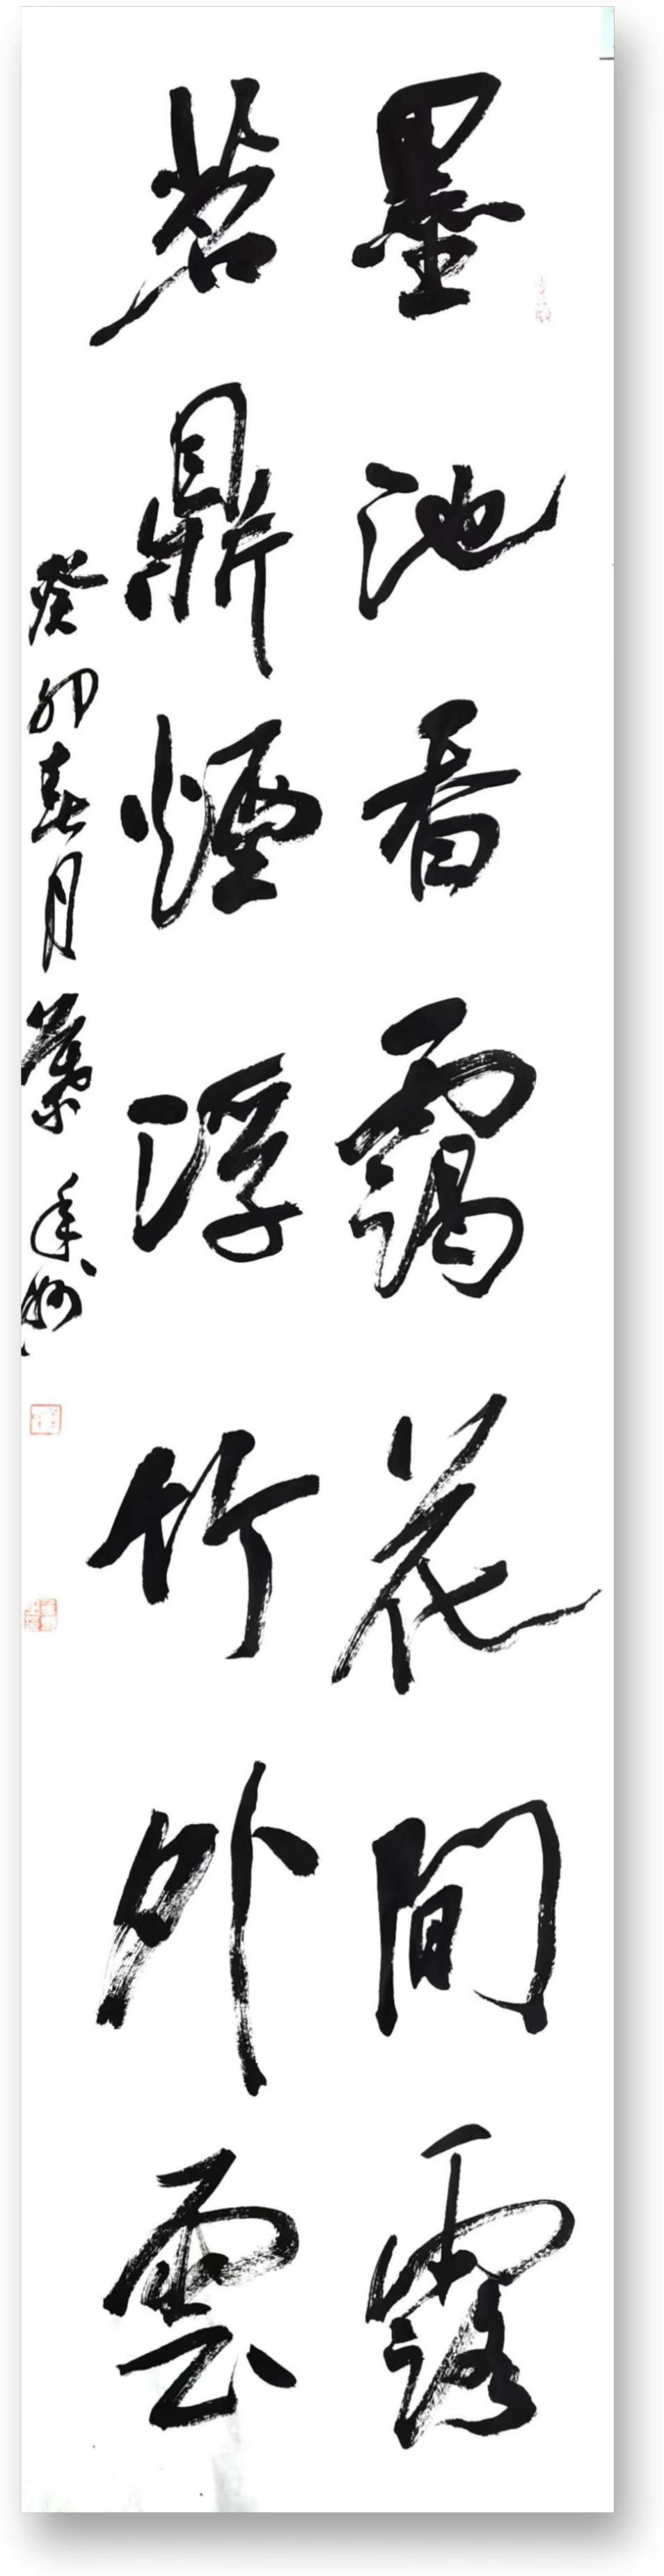 墨池香靄花間露
茗鼎煙浮竹外雲
癸卯春月